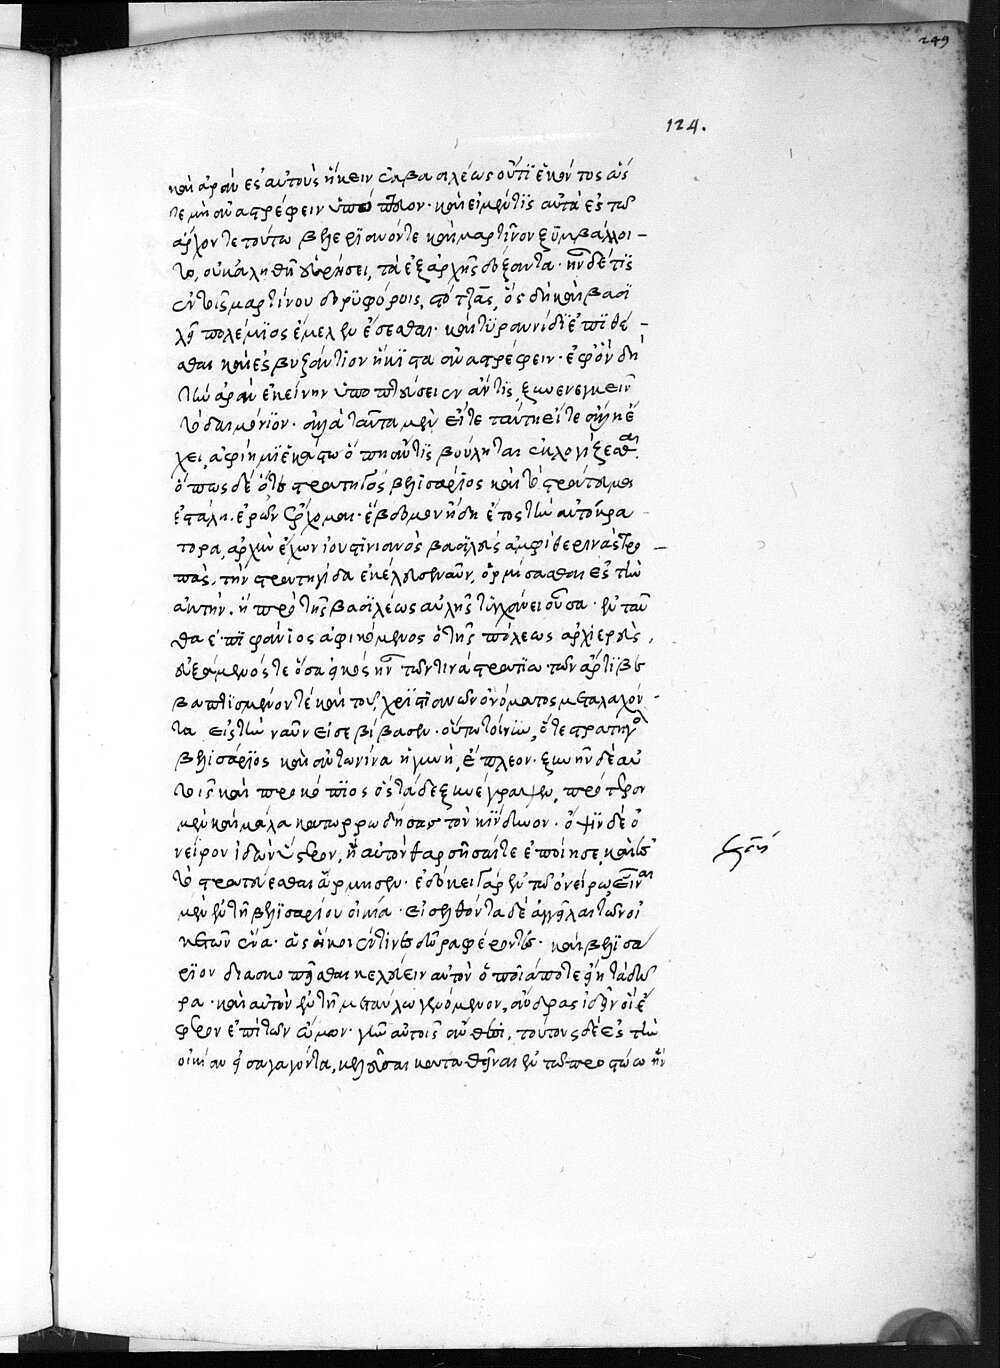 249
124.
καὶ ἀρὰν ἐς αὐτοὺς ἥκειν ἐκ βασιλέως οὔτι ἑκόντος ὥς
τε μὴ ἀναστρέφειν καὶ εἰ μέν τις αὐτὰ ἐς τὼ
ἄρχοντε τούτω βελεριανόν τε καὶ μαρτῖνον ξυμβάλλοι-
το, οὐκ ἀληθῆ εὑρήσει, τὰ ἐξ ἀρχῆς δόξαντα· ἦν δέ τις
ἐν τοῖς μαρτίνου δορυφόροις, στότζας, ὃς δὴ καὶ βασι
λεῖ πολέμιος ἔμελλεν ἔσεσθαι· καὶ τυραννίδι ἐπιθέ-
σθαι καὶ ἐς βυζάντιον ἥκιστα ἀναστρέφειν· ἐφ' ὃν δὴ
τὴν ἀρὰν ἐκείνην ὑποπτεύσειεν ἄν τις, ξυνενεγκεῖν
τὸ δαιμόνιον· ἀλλὰ ταῦτα μὲν εἴτε ταύτῃ εἴτε ἄλλῃ ἔ
χει, ἀφίημι ἑκάστῳ ὅπη ἄν τις βούληται ἐκλογίζεσθαι.
ὅπως δὲ ὅ τε στρατηγὸς βελισάριος καὶ τὸ στράτευμα
ἐστάλη. ἐρῶν ἔρχομαι· ἕβδομον ἤδη ἔτος τὴν αὐτοκρά
τορα, ἀρχὴν ἔχων ἰουστινιανὸς βασιλεὺς ἀμφὶ θερινὰς τρο-
πὰς. τὴν στρατηγίδα ἐκέλευσε ναῦν, ὁρμίσασθαι ἐς τὴν
ἀκτήν. ἣ πρὸ τῆς βασιλέως αὐλῆς τυγχάνει οὖσα· ἐνταῦ
θα ἐπιφάνιος ἀφικόμενος ὁ τῆς πόλεως ἀρχιερεὺς,
εὐξάμενός τε ὅσα εἰκὸς ἦν τῶν τινὰ στρατιω· τῶν ἄρτι βε
βαπτισμένον τέ καὶ τοῦ χριστιανῶν ὀνόματος μεταλαχόν-
τα εἰς τὴν ναῦν εἰσεβίβασεν· οὕτω τοίνυν, ὅ τε στρατηγὸς
βελισάριος καὶ ἀντωνίνα ἡ γυνὴ, ἔπλεον· ξυνῆν δὲ αὐ
τοῖς καὶ προκόπιος ὃς τάδε ξυνέγραψεν, πρότερον
μὲν καὶ μάλα κατορρωδήσας τὸν κίνδυνον· ὄψιν δὲ ὀ
νείρον ἰδὼν ὕστερον, ἣ αὐτὸν θαρσῆσαί τε ἐποίησε, καὶ ἐς
τὸ στρατεύεσθαι ὥρμησεν· ἐδόκει γὰρ ἐν τῷ ὀνείρῳ εἶναι
μὲν ἐν τῇ βελισαρίου οἰκία· εἰσελθόντα δὲ ἀγγεῖλαι τῶν οἰ
κετῶν ἕνα· ὡς ἥκοιέν τινες δῶρα φέροντες· καὶ βελισά
ριον διασκοπεῖσθαι κελεύειν αὐτὸν ὁποῖά ποτε εἴη τὰ δῶ
ρα· καὶ αὐτὸν ἐν τῇ μεταύλω γενόμενον, ἄνδρας ἰδεῖν οἳ ἔ
φερον ἐπὶ τῶν ὤμων· γῆν αὐτοῖς ἄνθεσι, τούτους δὲ ἐς τὴν
οἰκίαν ἐσαγαγόντα, κελεῦσαι καταθεῖναι ἐν τῷ προστώω ἣν